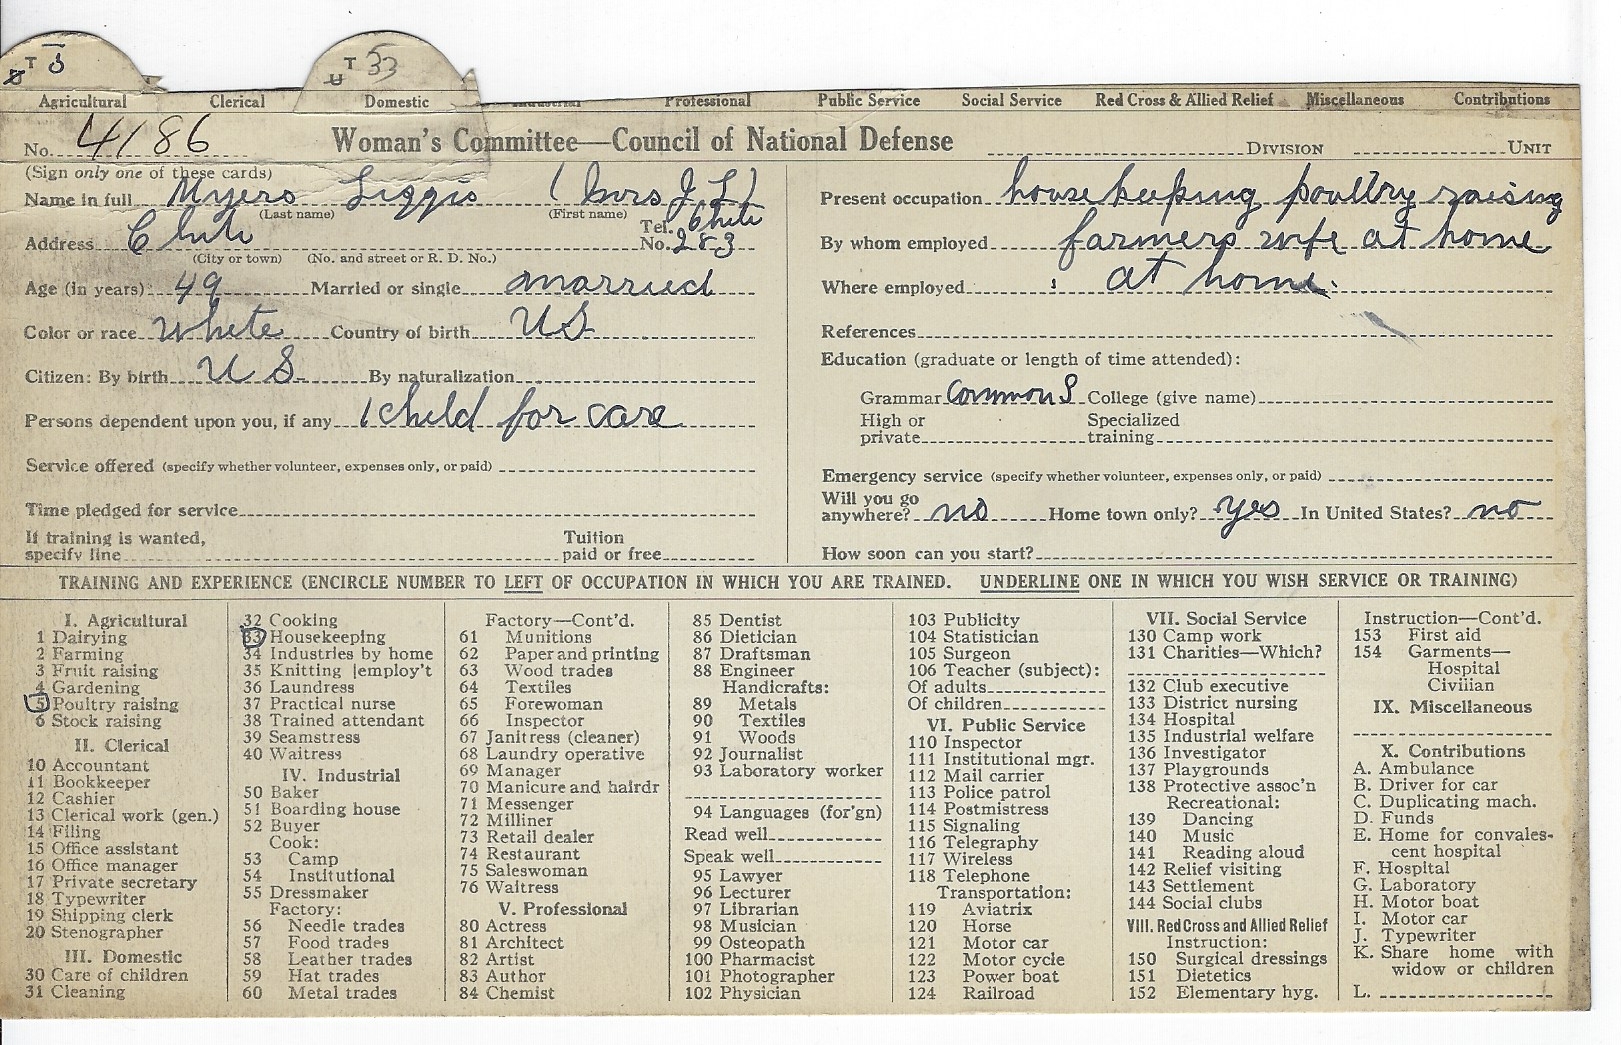 T 5
U T 33
Agricultural Clerical Domestic Industrial Professional Public Service Social Service Red Cross & Allied Relief Miscellaneous Contributions
No. 4186 Woman's Committee—Council of National Defense DIVISION UNIT
(Sign only one of these cards)
Name in full Myers Liggis (Mrs J. L.)
(Last name) (First name)
Address Chute Tel. No. Chute 283
(City or town) (No. and street or R. D. No.)
Age (in years) 49 Married or single married
Color or race white Country of birth US
Citizen: By birth U S. By naturalization
Persons dependent upon you, if any 1 child for care
Service offered (specify whether volunteer, expenses only, or paid)
Time pledged for service
If training is wanted, specify line Tuition paid or free
Present occupation housekeeping poultry raising
By whom employed farmers wife at home
Where employed at home.
References
Education (graduate or length of time attended):
Grammar Common S College (give name)
High or private Specialized training
Emergency service (specify whether volunteer, expenses only, or paid)
Will you go anywhere? no Home town only? yes In United States? no
How soon can you start?
TRAINING AND EXPERIENCE (ENCIRCLE NUMBER TO LEFT OF OCCUPATION IN WHICH YOU ARE TRAINED. UNDERLINE ONE IN WHICH YOU WISH SERVICE OR TRAINING)
I. Agricultural
1 Dairying
2 Farming
3 Fruit raising
4 Gardening
5 Poultry raising
6 Stock raising
II. Clerical
10 Accountant
11 Bookkeeper
12 Cashier
13 Clerical work (gen.)
14 Filing
15 Office assistant
16 Office manager
17 Private secretary
18 Typewriter
19 Shipping clerk
20 Stenographer
III. Domestic
30 Care of children
31 Cleaning
32 Cooking
33 Housekeeping
34 Industries by home
35 Knitting [employ't
36 Laundress
37 Practical nurse
38 Trained attendant
39 Seamstress
40 Waitress
IV. Industrial
50 Baker
51 Boarding house
52 Buyer
Cook:
53 Camp
54 Institutional
55 Dressmaker
Factory:
56 Needle trades
57 Food trades
58 Leather trades
59 Hat trades
60 Metal trades
Factory—Cont'd.
61 Munitions
62 Paper and printing
63 Wood trades
64 Textiles
65 Forewoman
66 Inspector
67 Janitress (cleaner)
68 Laundry operative
69 Manager
70 Manicure and hairdr
71 Messenger
72 Milliner
73 Retail dealer
74 Restaurant
75 Saleswoman
76 Waitress
V. Professional
80 Actress
81 Architect
82 Artist
83 Author
84 Chemist
85 Dentist
86 Dietician
87 Draftsman
88 Engineer
Handicrafts:
89 Metals
90 Textiles
91 Woods
92 Journalist
93 Laboratory worker
94 Languages (for'gn)
Read well
Speak well
95 Lawyer
96 Lecturer
97 Librarian
98 Musician
99 Osteopath
100 Pharmacist
101 Photographer
102 Physician
103 Publicity
104 Statistician
105 Surgeon
106 Teacher (subject):
Of adults
Of children
VI. Public Service
110 Inspector
111 Institutional mgr.
112 Mail carrier
113 Police patrol
114 Postmistress
115 Signaling
116 Telegraphy
117 Wireless
118 Telephone
Transportation:
119 Aviatrix
120 Horse
121 Motor car
122 Motor cycle
123 Power boat
124 Railroad
VII. Social Service
130 Camp work
131 Charities—Which?
132 Club executive
133 District nursing
134 Hospital
135 Industrial welfare
136 Investigator
137 Playgrounds
138 Protective assoc'n
Recreational:
139 Dancing
140 Music
141 Reading aloud
142 Relief visiting
143 Settlement
144 Social clubs
VIII. Red Cross and Allied Relief
Instruction:
150 Surgical dressings
151 Dietetics
152 Elementary hyg.
Instruction—Cont'd.
153 First aid
154 Garments—
Hospital
Civilian
IX. Miscellaneous
X. Contributions
A. Ambulance
B. Driver for car
C. Duplicating mach.
D. Funds
E. Home for convales-
cent hospital
F. Hospital
G. Laboratory
H. Motor boat
I. Motor car
J. Typewriter
K. Share home with
widow or children
L.